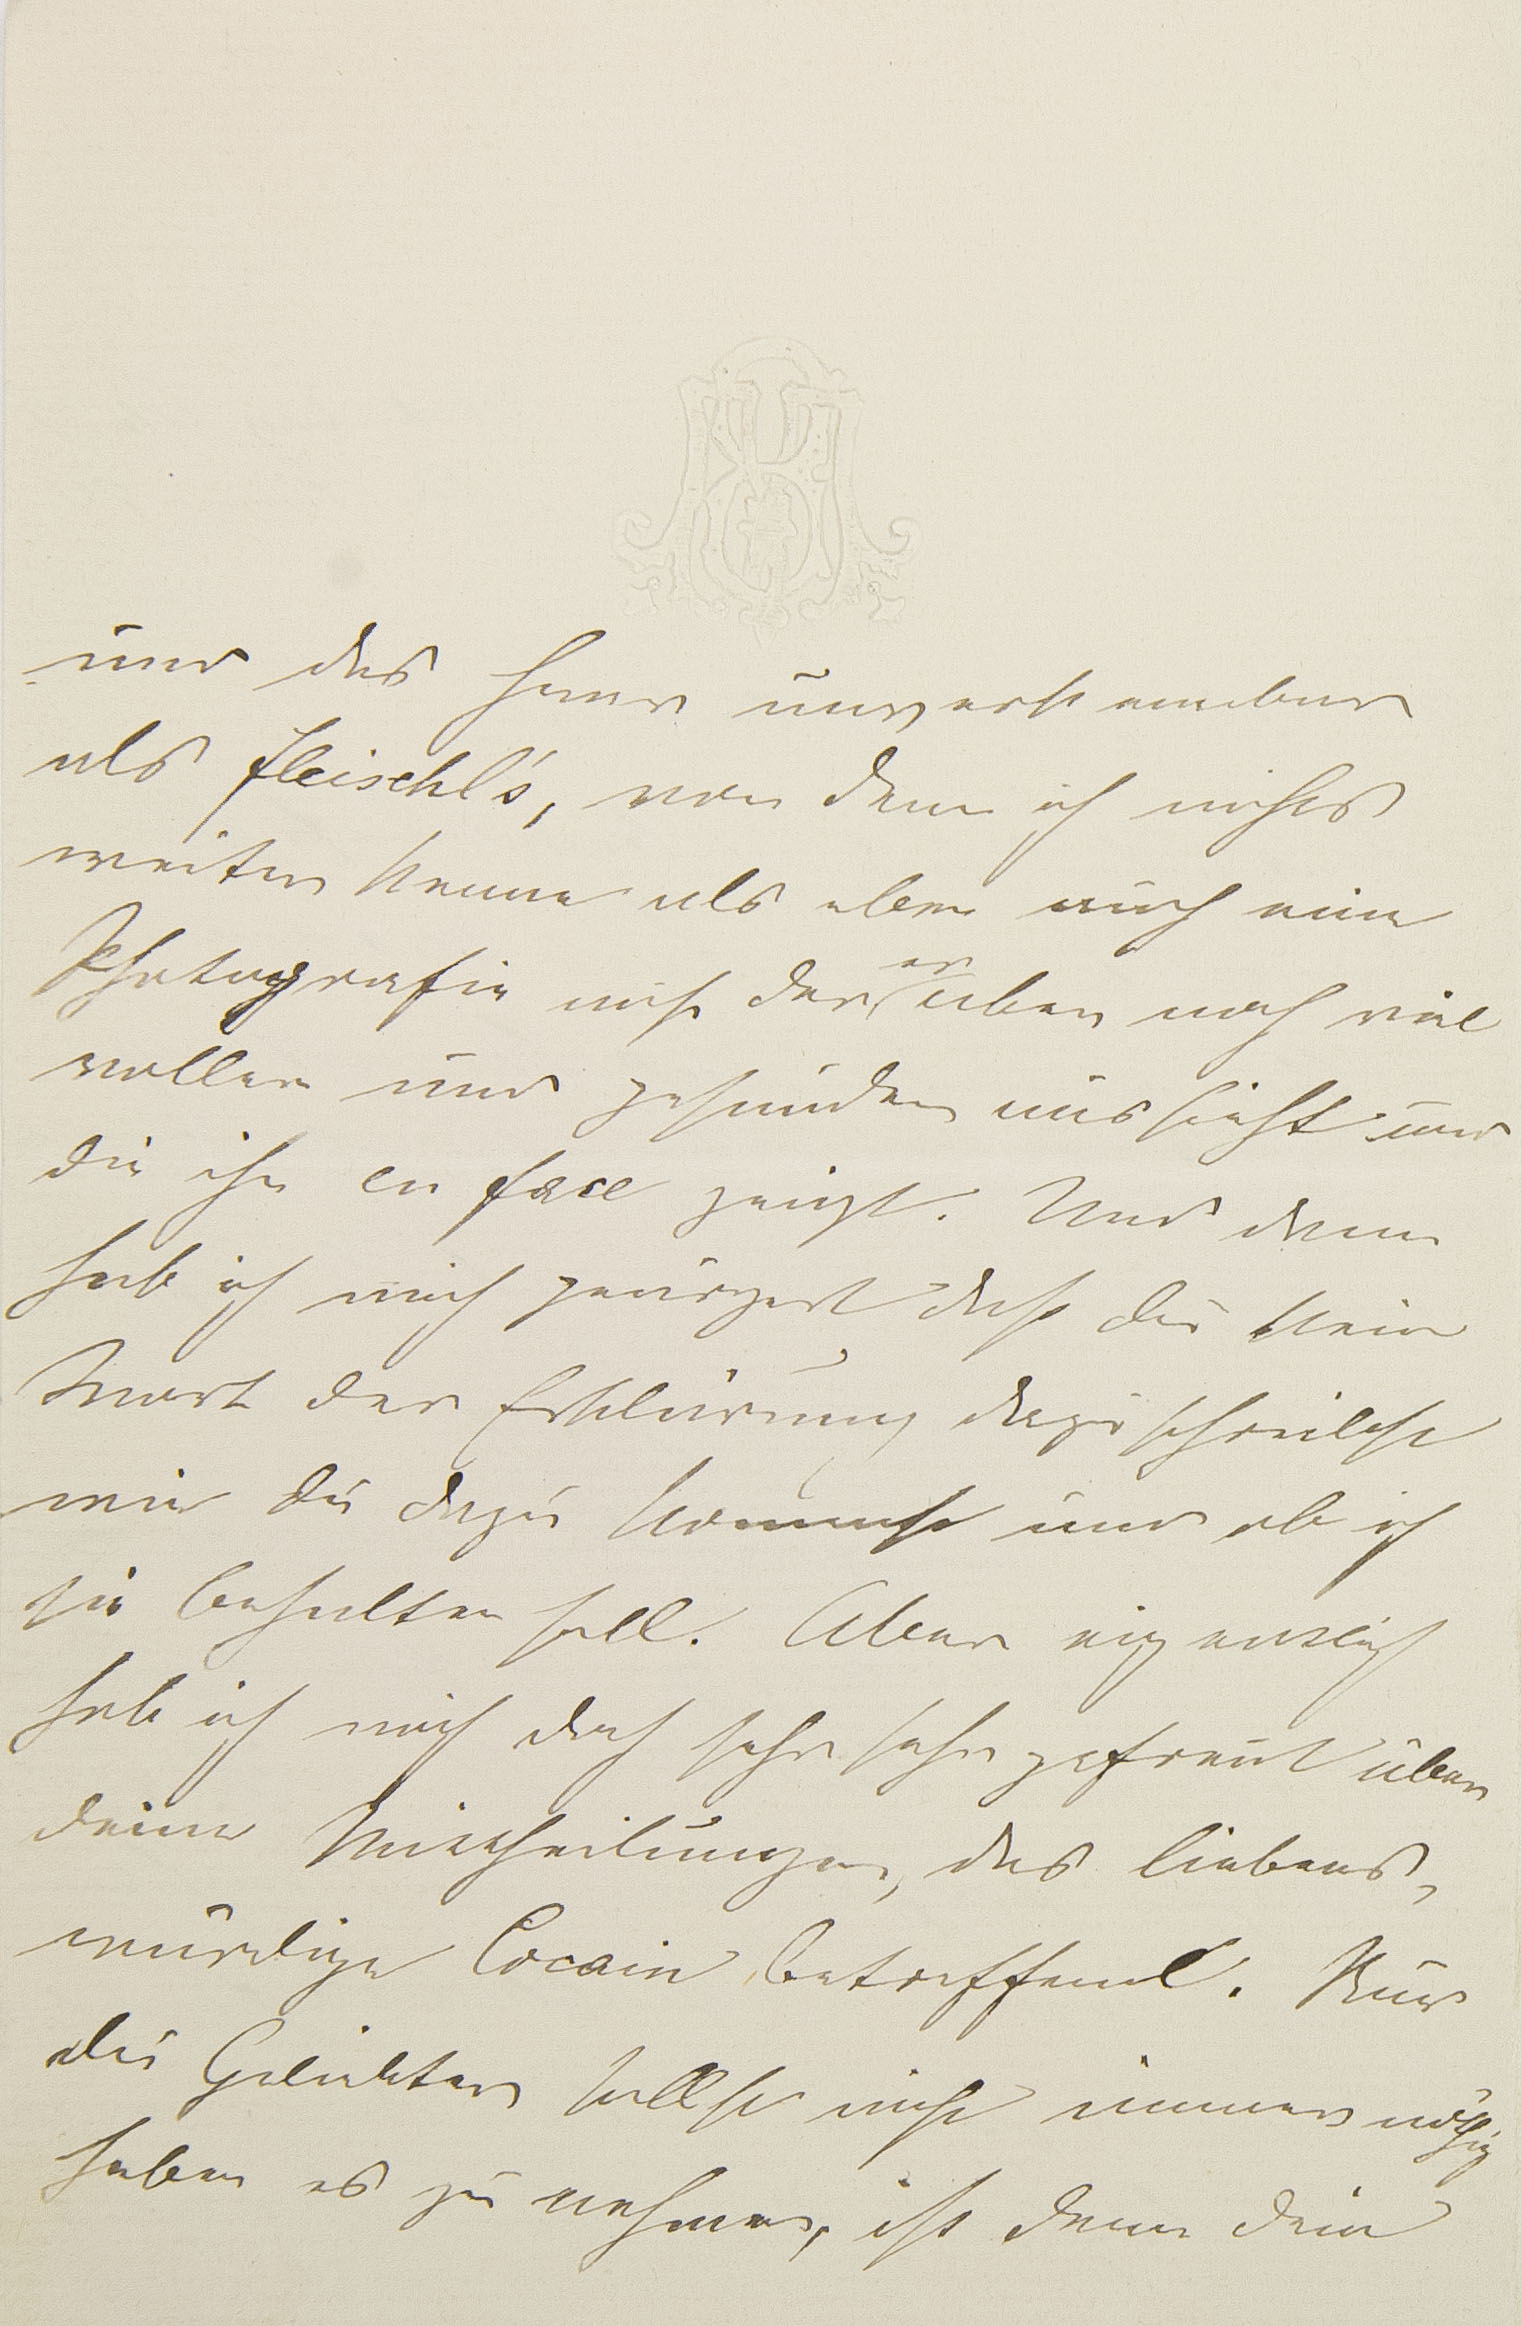 und das Haar unverkennbar
als Fleischl's, von dem ich nichts
weiter kenne als eben auch eine
Photografie auf der er aber noch viel
voller und gesunder aussieht und
die ihn en face zeigt. Und dann
hab ich mich geärgert daß du kein
Wort der Erklärung dazu schreibst
wie du dazu kommst und ob ich
sie behalten soll. Aber eigentlich
hab ich mich doch sehr sehr gefreut über
deine Mittheilungen, das liebens-
würdige Cocain betreffend. Nur
du Geliebter sollst nicht immer nöthig
haben es zu nehmen, ist denn dein